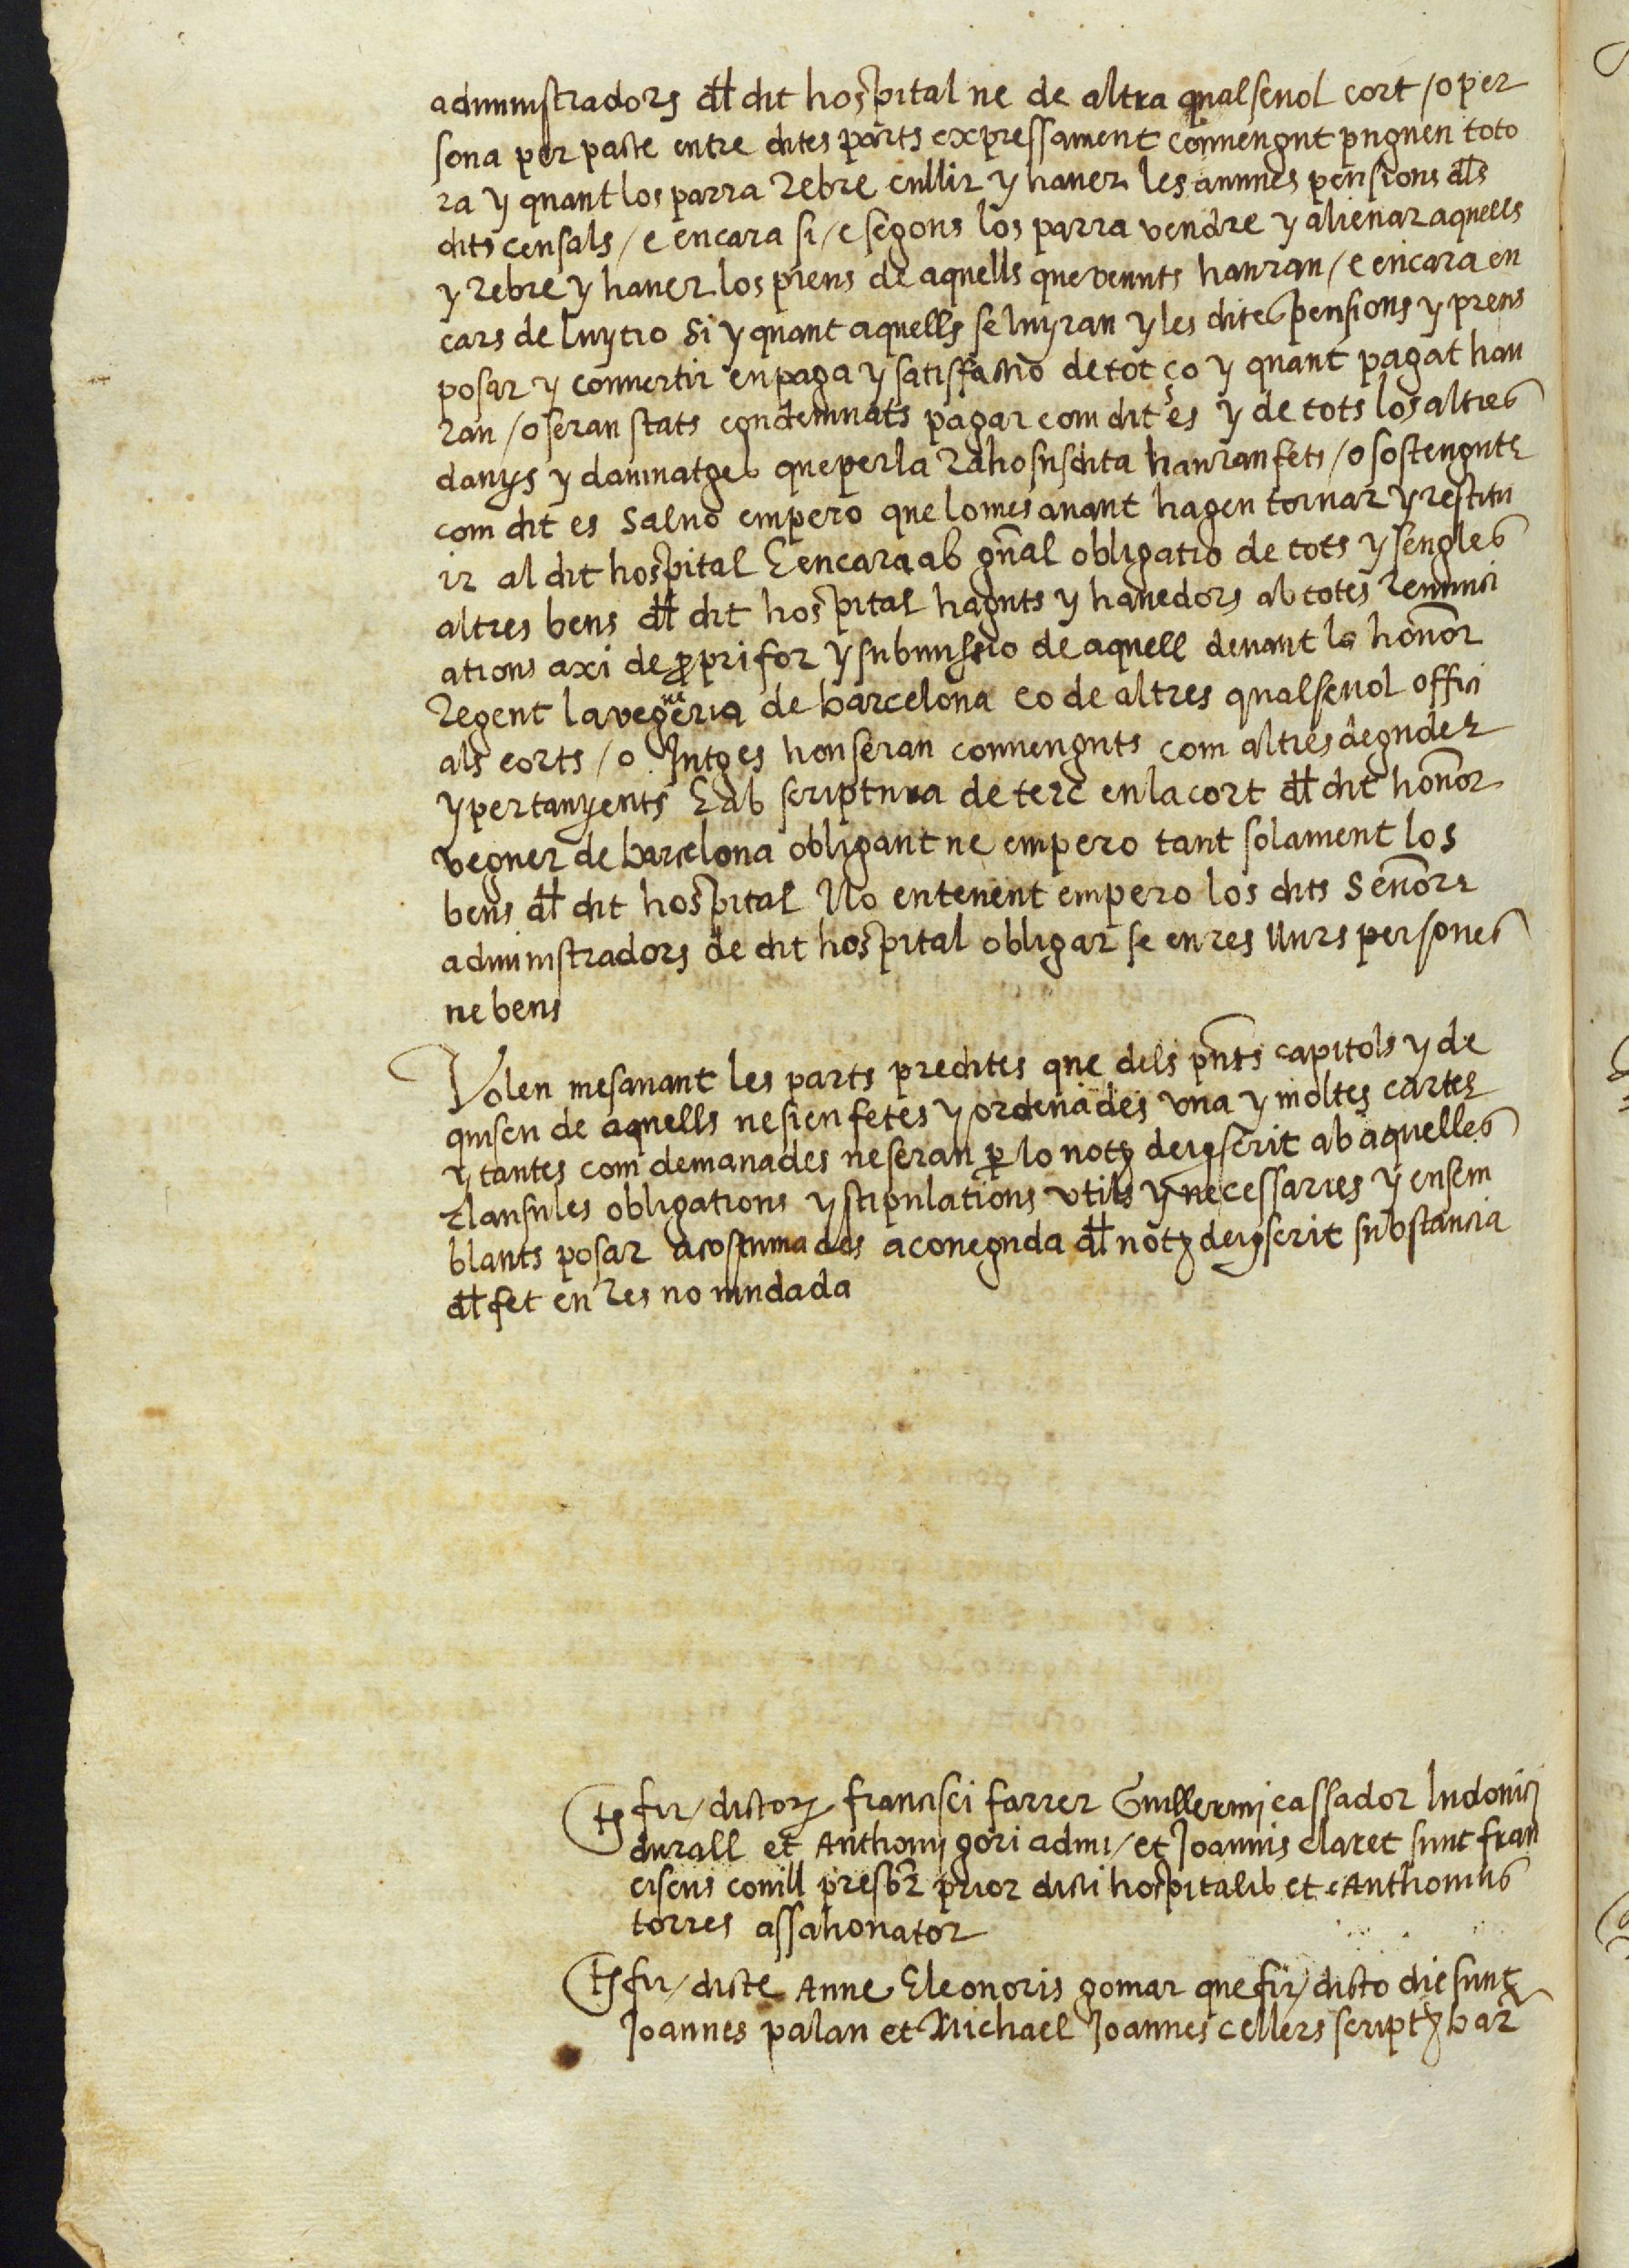 administradors dl dit hospital ne de altra qualsevol cort / o per
sona per pacte entre dites parts expressament convengut puguen toto
ra y quant los parra rebre cullir y haver les annues pensions dls
dits censals / e encara si / e segons los parra vendre y alienar aquells
y rebre y haver los preus de aquells que venuts hauran / e encara en
cars de luytio si y quant aquells se luyran y les dites pensions y preus
posar y convertir en paga y satisfactio de tot ço y quant pagat hau
ran / o seran stats condemnats pagar com dit es y de tots los altres
danys y damnatges que per la raho susdita hauran fets / o sostenguts
com dit es Salvo empero que lo mes avant hagen tornar y restitu
ir al dit hospital E encara ab gnal obligatio de tots y sengles
altres bens dl dit hospital haguts y havedors ab totes renunci
ations axi de propri for y submissio de aquell devant lo honor
Regent la vegueria de barcelona eo de altres qualsevol offici
als corts / o Jutges hon seran convenguts com altres degudes
y pertanyents E ab scriptura de terc en la cort dl dit honor
veguer de barcelona obligant ne empero tant solament los
bens dl dit hospital No entenent empero los dits Senors
administradors de dit hospital obligar se en res llurs persones
ne bens
Volen mes avant les parts predites que dels pnts capitols y de
quiscu de aquells ne sien fetes y ordenades una y moltes cartes
y tantes com demanades ne seran per lo not devjscrit ab aquelles
clausules obligations y stipulations utils y necessaries y ensem
blants posar acostumades a coneguda dl not devjscrit substancia
dl fet en res no mudada
ts fir / dictor francisci farrer Guillermi cassador ludovici
durall et Anthonij gori admi / et Joannis claret sunt fran
ciscus conill presbr prior dicti hospitalis et Anthonius
torres assahonator
ts fir / dicte Anne Eleonoris gomar que fir / dicto die sunt
Joannes palau et Michael Joannes cellers script bar